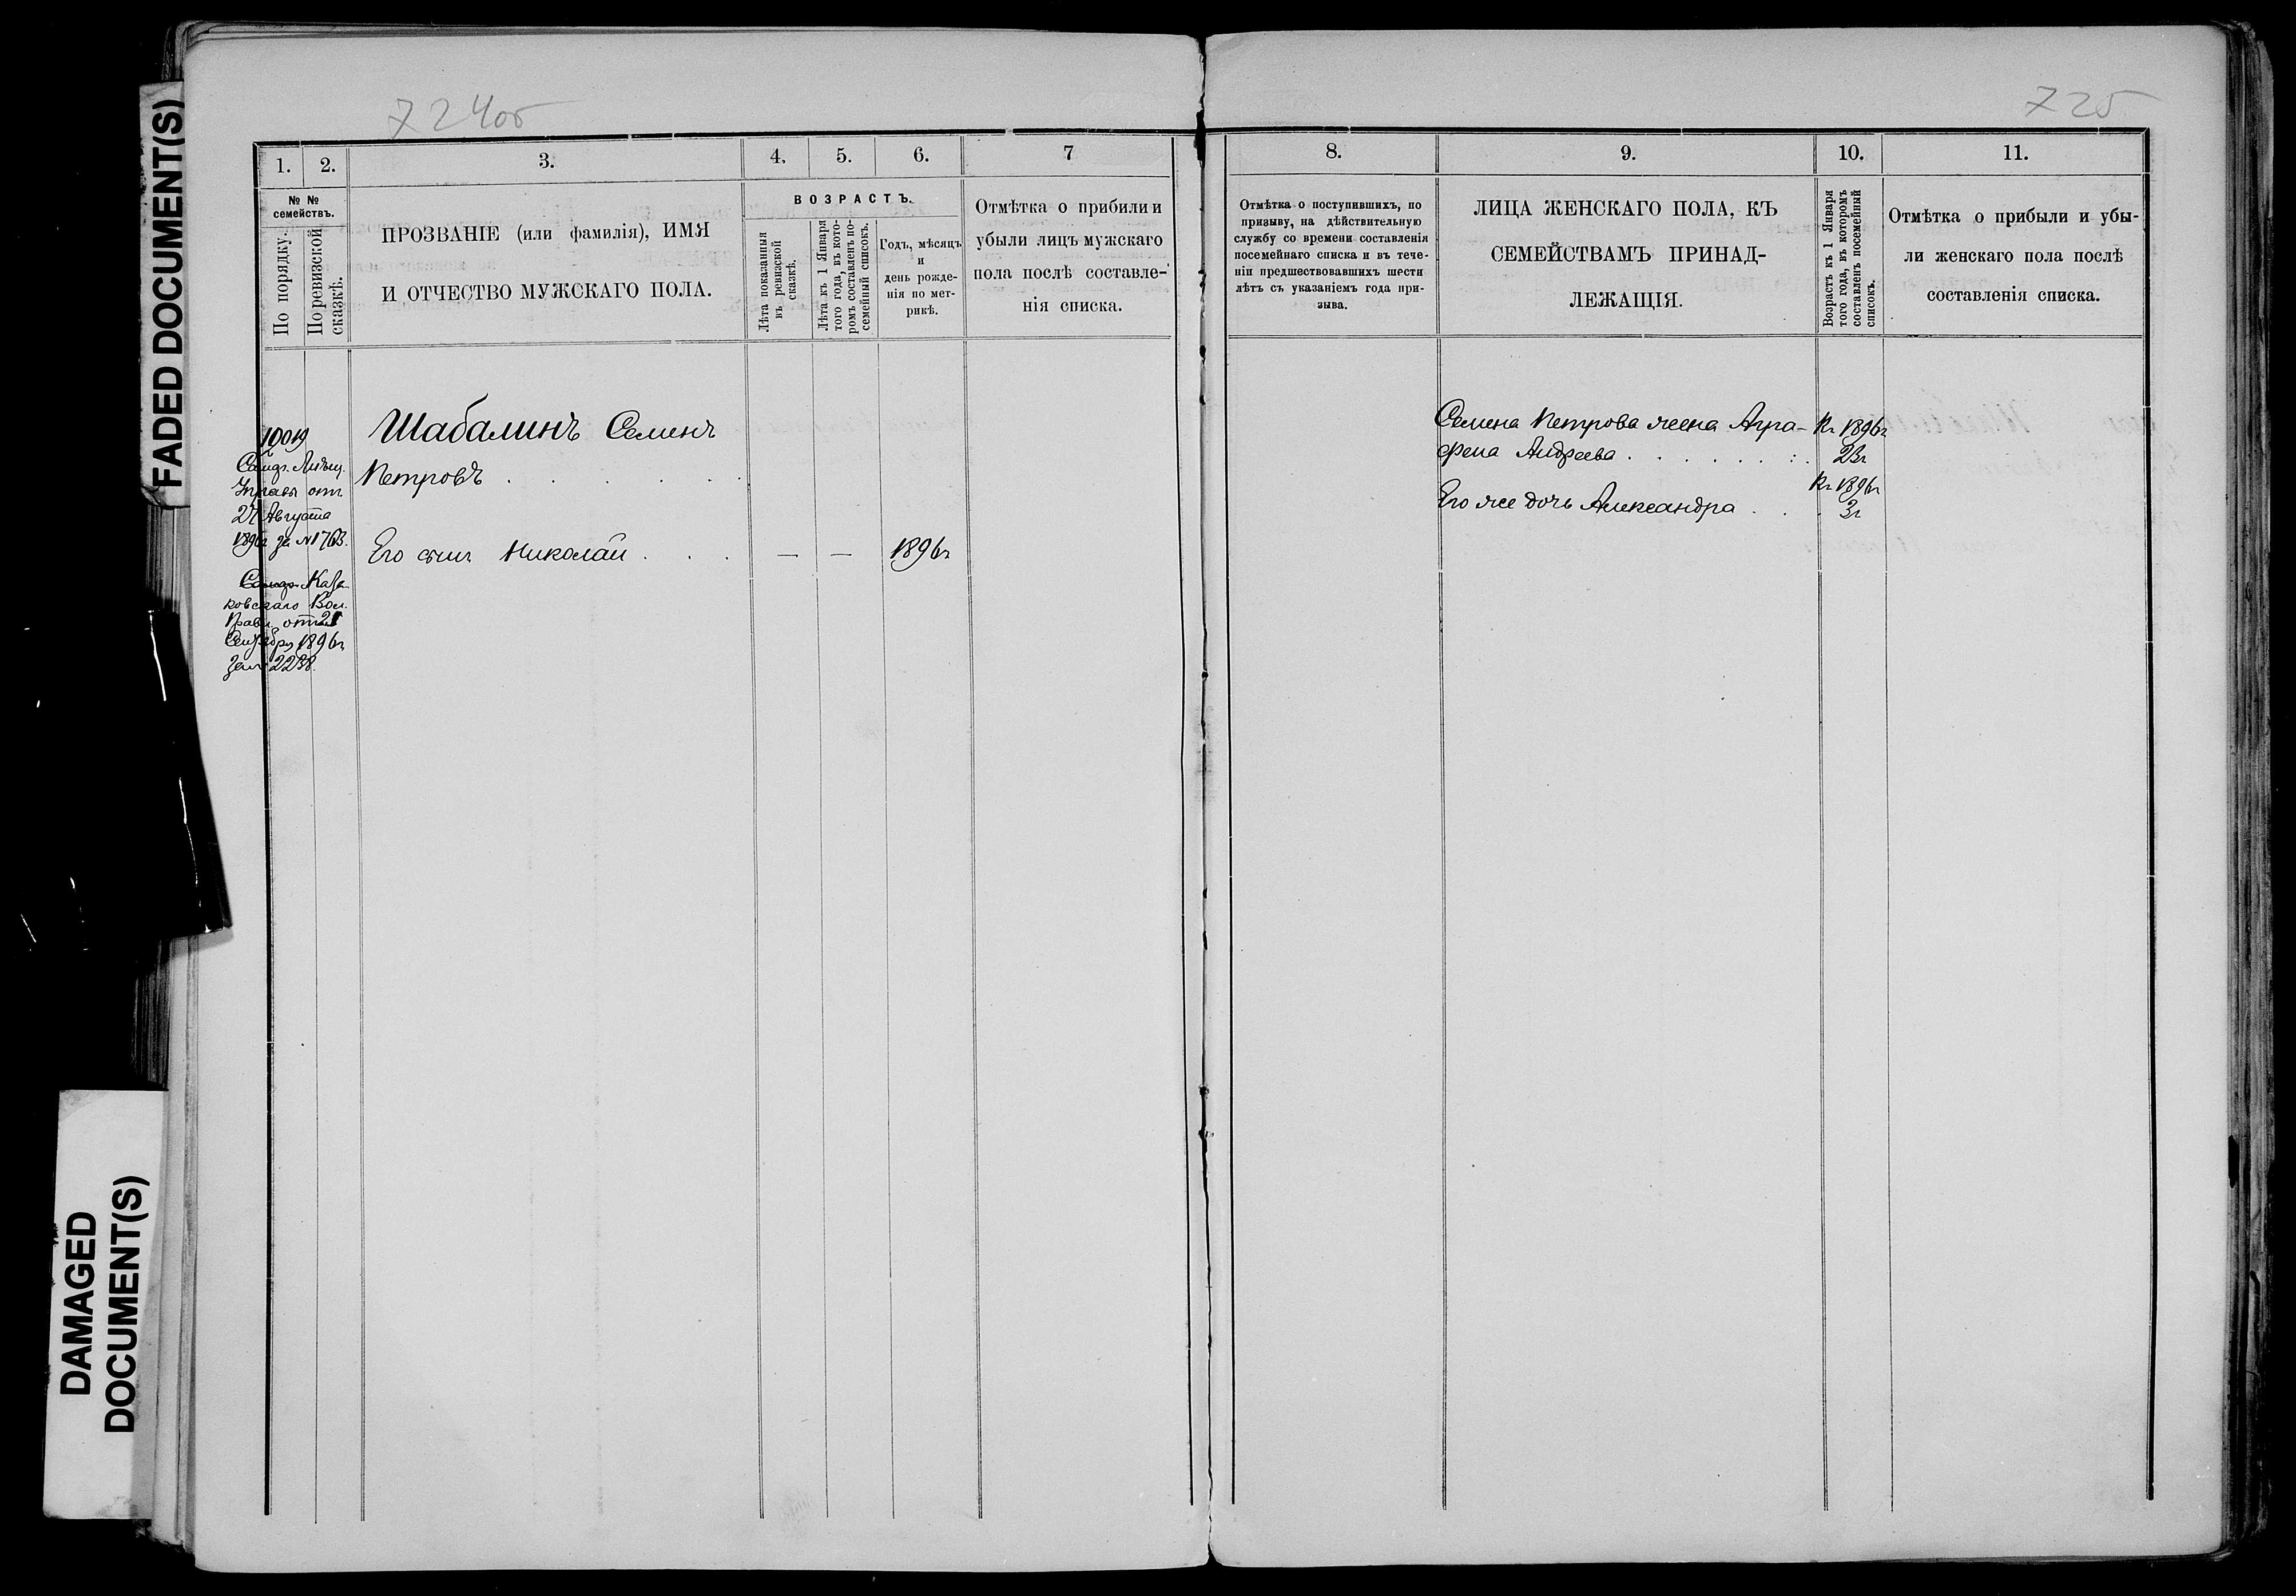 FADED DOCUMENT(S)
DAMAGED
DOCUMENT(S)
724об
1. 2. 3. 4. 5. 6. 7
№ №
семействъ.
По порядку.
По ревизской
сказкѣ.
ПРОЗВАНІЕ (или фамилія), ИМЯ
И ОТЧЕСТВО МУЖСКАГО ПОЛА.
ВОЗРАСТЪ.
Лѣта показанныя
въ ревизской
сказкѣ.
Лѣта къ 1 Января
того года, въ кото-
ромъ составленъ по-
семейный списокъ.
Годъ, мѣсяцъ
и
день рожде-
нія по мет-
рикѣ.
Отмѣтка о прибили и
убыли лицъ мужскаго
пола послѣ составле-
нія списка.
10019
Управы отъ
27 Августа
1896г за №1763.
Каза-
ковскаго Вол.
Правл. отъ 25
Сентября 1896г
за № 2238.
Шабалинъ Семенъ
Петровъ . . . . . .
Его сынъ Николай . . . — — 1896г
725
8. 9. 10. 11.
Отмѣтка о поступившихъ, по
призыву, на дѣйствительную
службу со времени составленія
посемейнаго списка и въ тече-
ніи предшествовавшихъ шести
лѣтъ съ указаніемъ года при-
зыва.
ЛИЦА ЖЕНСКАГО ПОЛА, КЪ
СЕМЕЙСТВАМЪ ПРИНАД-
ЛЕЖАЩІЯ.
Возрастъ къ 1 Января
того года, въ которомъ
составленъ посемейный
списокъ.
Отмѣтка о прибыли и убы-
ли женскаго пола послѣ
составленія списка.
Семена Петрова жена Агра- Къ 1896г
фена Андреева . . . . . . . 23г
Къ 1896г
Его же дочь Александра . . . 3г